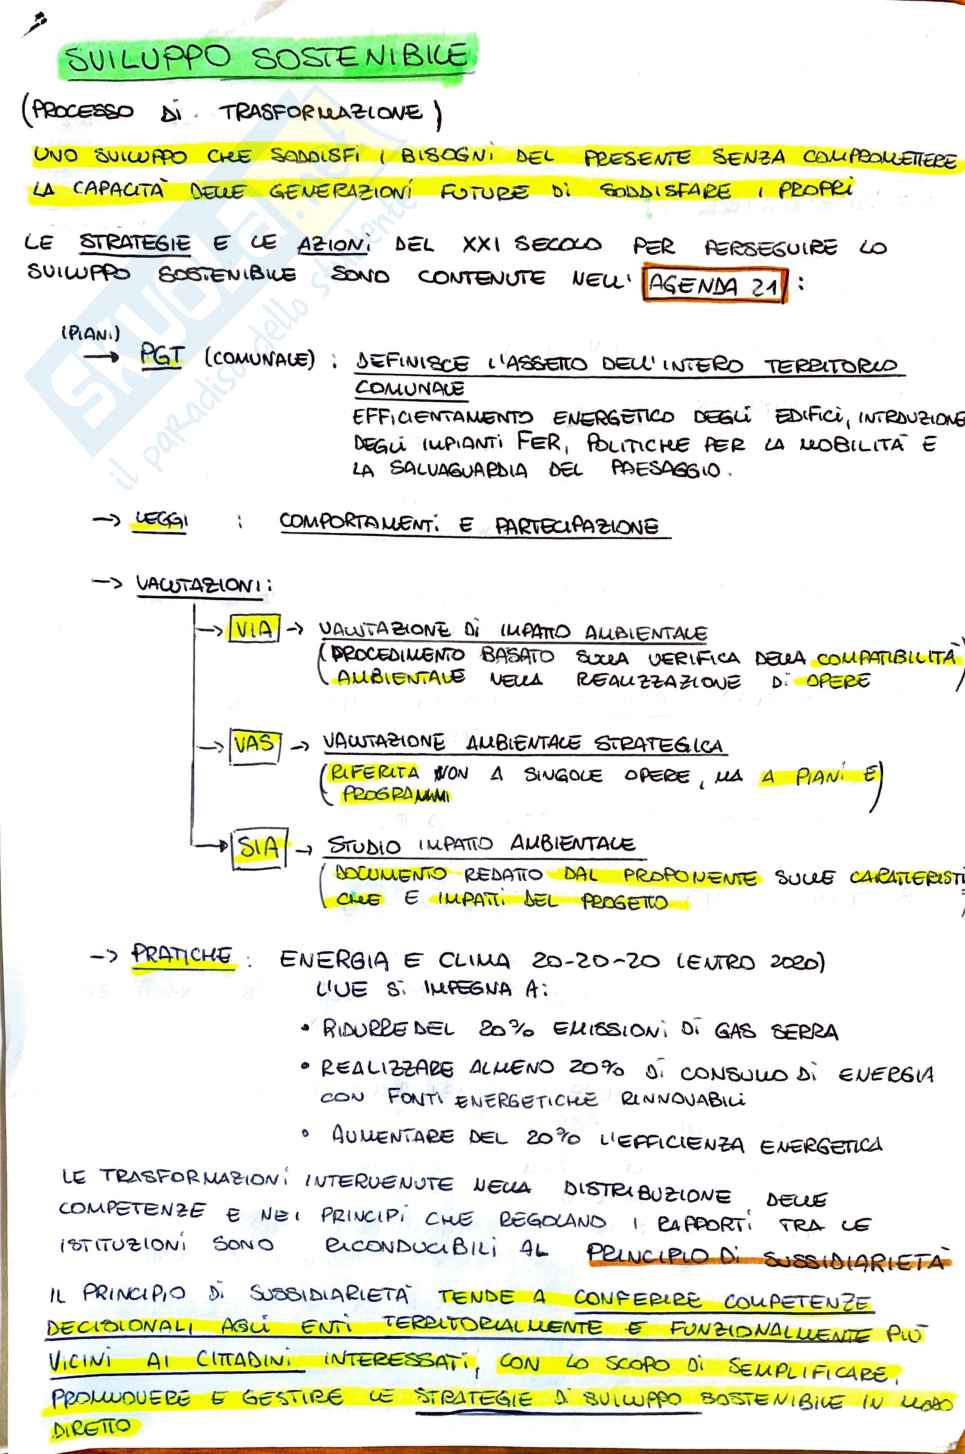 SVILUPPO SOSTENIBILE
(PROCESSO Di TRASFORMAZIONE)
UNO SVILUPPO CHE SODDISFI I BISOGNI DEL PRESENTE SENZA COMPROMETTERE
LA CAPACITÀ DELLE GENERAZIONI FUTURE Di SODDISFARE I PROPRI
LE STRATEGIE E LE AZIONI DEL XXI SECOLO PER PERSEGUIRE LO
SVILUPPO SOSTENIBILE SONO CONTENUTE NELL' AGENDA 21 :
(PIANI)
→ PGT (COMUNALE) : DEFINISCE L'ASSETTO DELL'INTERO TERRITORIO
COMUNALE
EFFICIENTAMENTO ENERGETICO DEGLI EDIFICI, INTRODUZIONE
DEGLI IMPIANTI FER, POLITICHE PER LA MOBILITÀ E
LA SALVAGUARDIA DEL PAESAGGIO.
→ LEGGI : COMPORTAMENTI E PARTECIPAZIONE
→ VALUTAZIONI:
→ VIA → VALUTAZIONE Di IMPATTO AMBIENTALE
(PROCEDIMENTO BASATO SULLA VERIFICA DELLA COMPATIBILITÀ
AMBIENTALE NELLA REALIZZAZIONE Di OPERE)
→ VAS → VALUTAZIONE AMBIENTALE STRATEGICA
(RIFERITA NON A SINGOLE OPERE, MA A PIANI E
PROGRAMMI)
→ SIA → STUDIO IMPATTO AMBIENTALE
(DOCUMENTO REDATTO DAL PROPONENTE SULLE CARATTERISTI
CHE E IMPATTI DEL PROGETTO
→ PRATICHE : ENERGIA E CLIMA 20-20-20 (ENTRO 2020)
L'UE Si IMPEGNA A:
• RIDURRE DEL 20% EMISSIONI Di GAS SERRA
• REALIZZARE ALMENO 20% Di CONSUMO Di ENERGIA
CON FONTI ENERGETICHE RINNOVABILI
• AUMENTARE DEL 20% L'EFFICIENZA ENERGETICA
LE TRASFORMAZIONI INTERVENUTE NELLA DISTRIBUZIONE DELLE
COMPETENZE E NEI PRINCIPI CHE REGOLANO I RAPPORTI TRA LE
ISTITUZIONI SONO RICONDUCIBILI AL PRINCIPIO Di SUSSIDIARIETÀ
IL PRINCIPIO Di SUSSIDIARIETÀ TENDE A CONFERIRE COMPETENZE
DECISIONALI AGLI ENTI TERRITORIALMENTE E FUNZIONALMENTE PIÙ
VICINI AI CITTADINI INTERESSATI, CON LO SCOPO Di SEMPLIFICARE,
PROMUOVERE E GESTIRE LE STRATEGIE Di SVILUPPO SOSTENIBILE IN MODO
DIRETTO
SKUOLA.net
il paradiso dello studente